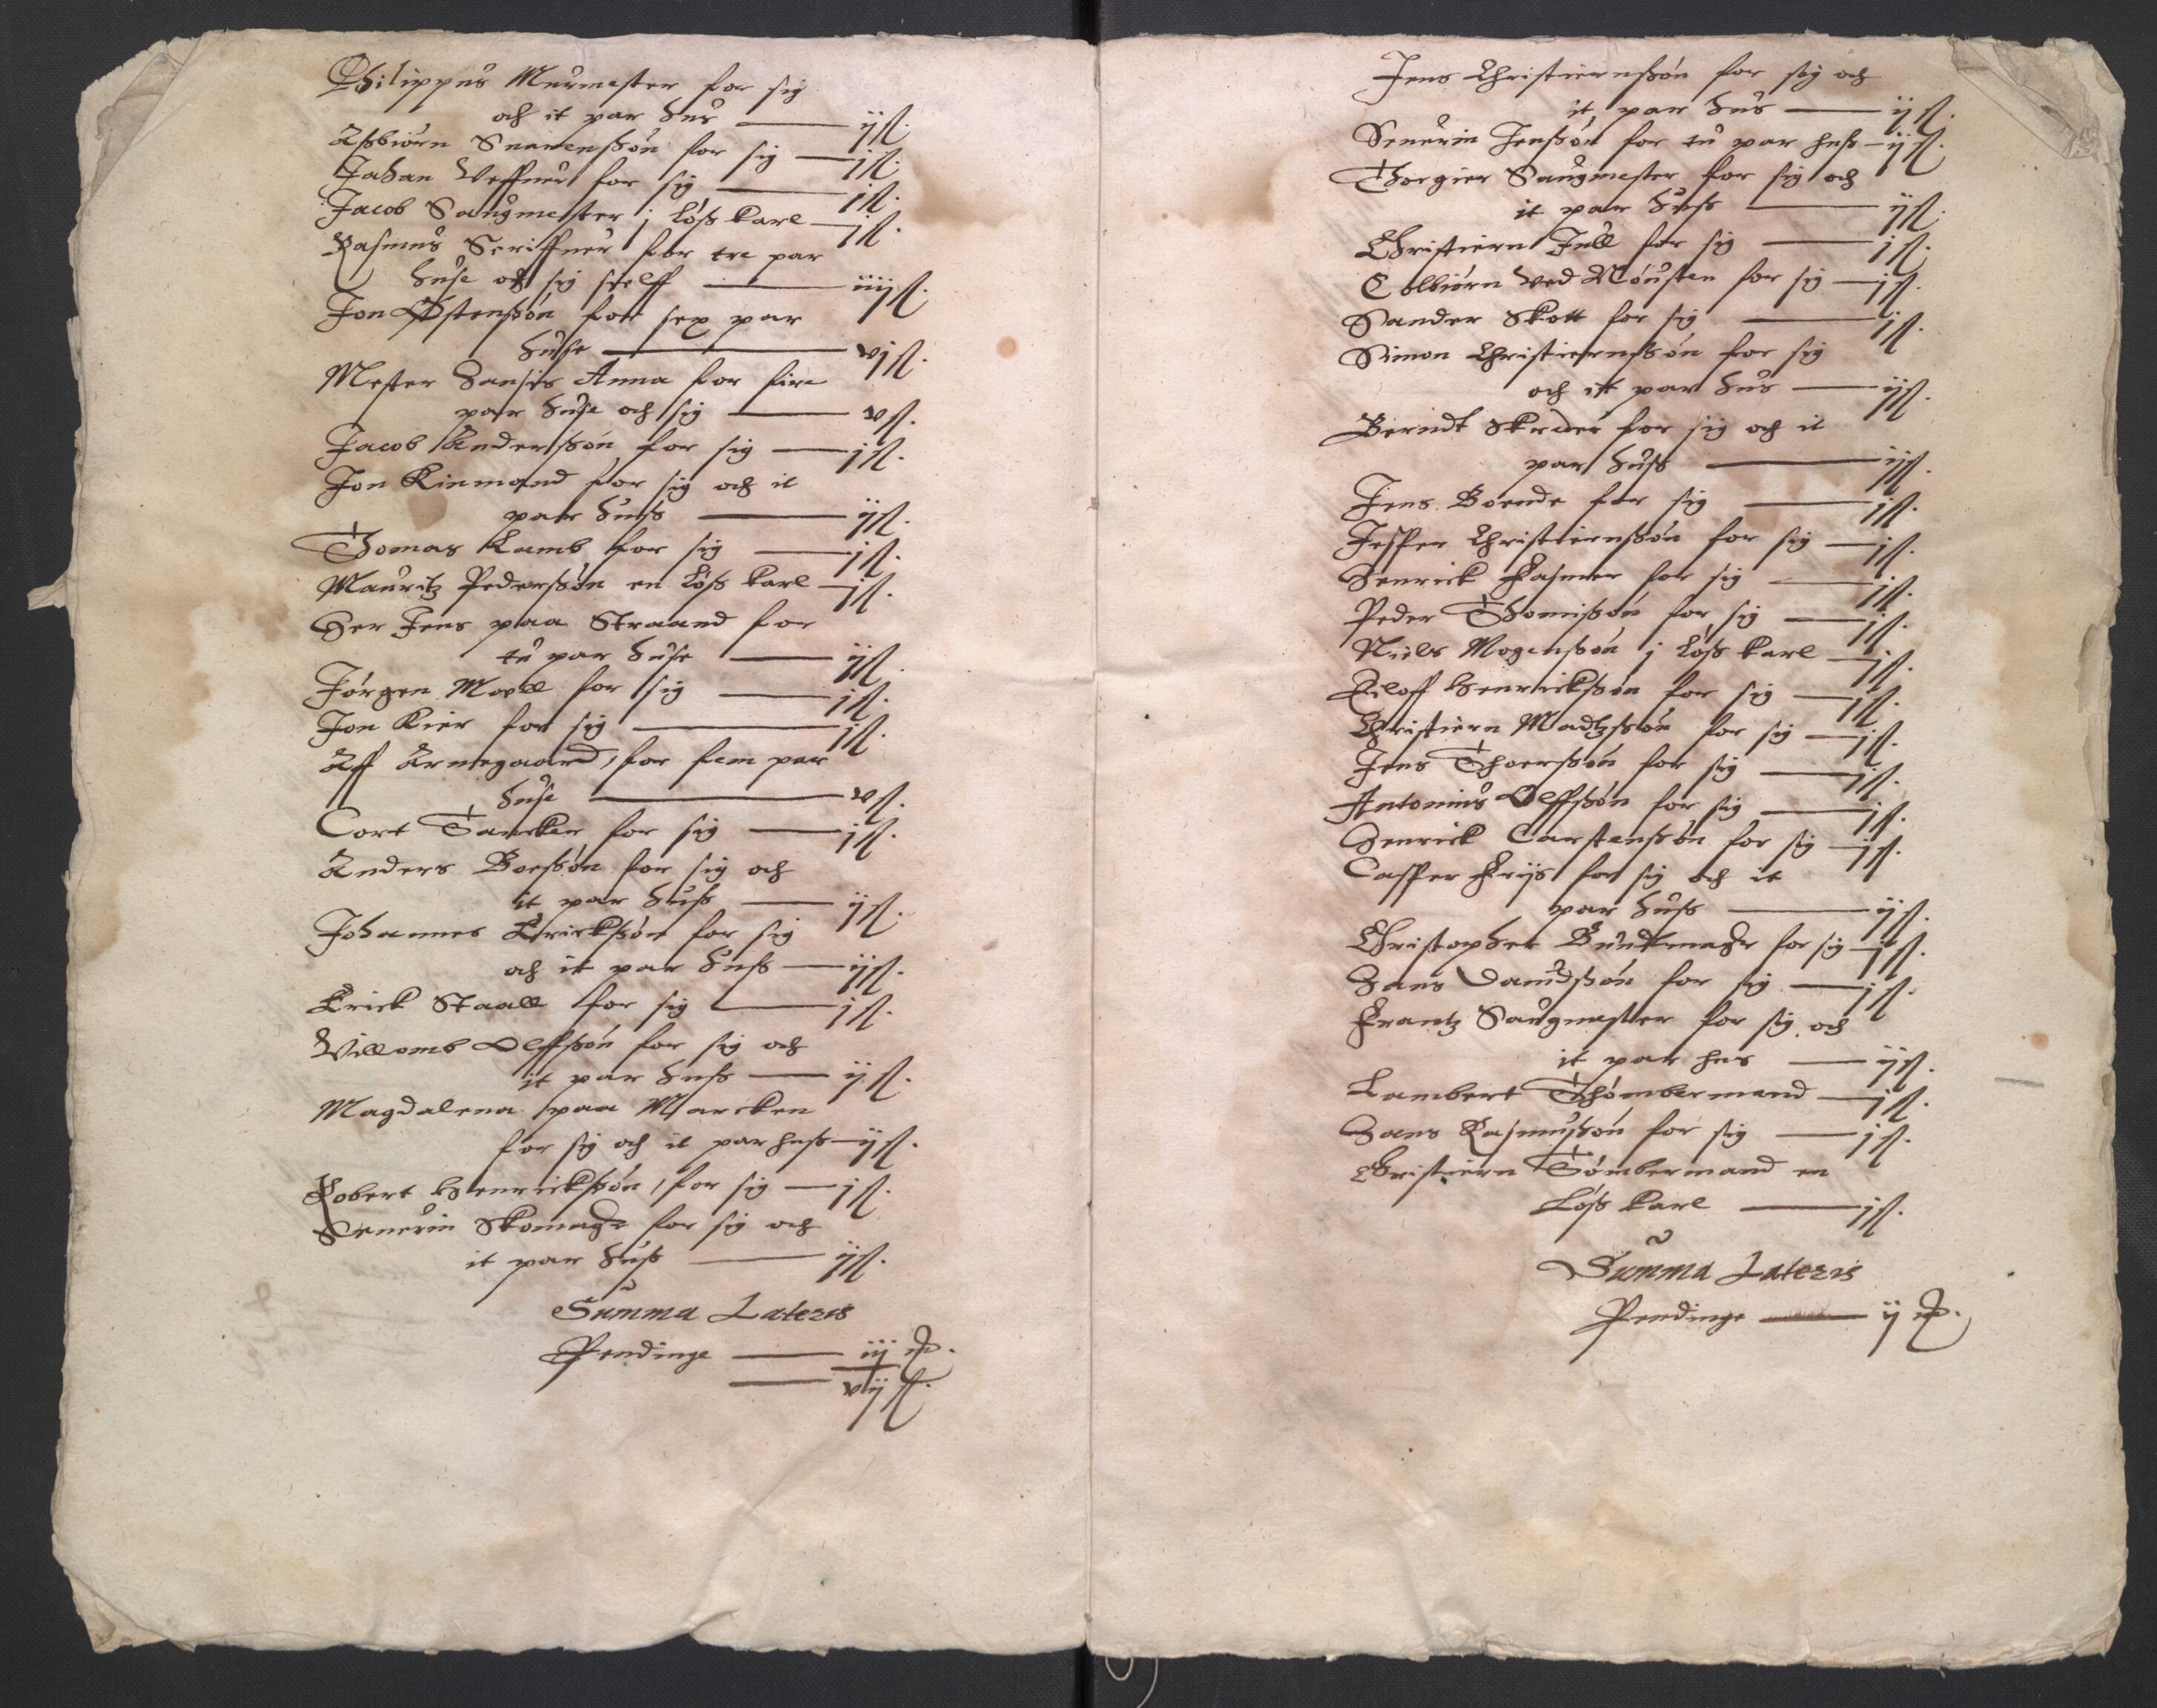 Philippus Murmester for sig
och it par hus —— ij ß.
Asbiørn Suanenßøn for sig — j ß.
Johan Veffner for sig —— j ß.
Jacob Saugmester j løß karl — j ß.
Rasmus Scriffuer for tre par
huse och sig sielff —— iiij ß.
Jon Østenßøn for sex par
huse —— vj ß.
Mester Hansis Anna for fire
par huse och sig —— v ß.
Jacob Anderßøn for sig — j ß.
Jon Kinmand for sig och it
par huß —— ij ß.
Thomas Lamb for sig —— j ß.
Mauritz Pederßøn en løß karl — j ß.
Her Jens paa Straand for
tu par huse —— ij ß.
Jørgen Moell for sig —— j ß.
Jon Kier for sig —— j ß.
Aff Arnegaard, for fem par
huse —— v ß.
Cort Tancker for sig —— j ß.
Anders Boeßøn for sig och
it par huß —— ij ß.
Johannes Erickßøn for sig
och it par huß — ij ß.
Erick Staall for sig —— j ß.
Villomb Olffßøn for sig och
it par huß —— ij ß.
Magdalena paa Marcken
for sig och it par huß — ij ß.
Robert Henrickßøn, for sig — j ß.
Seuerin Skomager for sig och
it par huß —— ij ß.
Summa Lateris
Pendinge —— iij
—— vij ß.
Jens Christiernßøn for sig och
it par hus —— ij ß.
Seuerin Jenßøn for tu par huß — ij ß.
Thorgier Saugmester for sig och
it par huß —— ij ß.
Christiern Jull for sig —— j ß.
Colbiørn ved Nøusten for sig — j ß.
Sander Skott for sig —— j ß.
Simon Christiernßøn for sig
och it par hus —— ij ß.
Berindt Skreder for sig och it
par huß —— ij ß.
Jens Boende for sig —— j ß.
Jesper Christiernßøn for sig — j ß.
Henrick Fasmer for sig —— j ß.
Peder Thomißøn for sig —— j ß.
Niels Mogenßøn j løß karl — j ß.
Eiloff Henrickßøn for sig — j ß.
Christiern Madtzßøn for sig — j ß.
Jens Thoerßøn for sig —— j ß.
Antonius Olffßøn for sig —— j ß.
Henrick Carstenßøn for sig — j ß.
Casper Friis for sig och it
par huß —— ij ß.
Christopher Bundtmager for sig — j ß.
Hans Dauidßøn for sig —— j ß.
Frantz Saugmester for sig och
it par hus —— ij ß.
Lambert Thømbermand — j ß.
Hans Rasmußøn for sig —— j ß.
Christiern Tømbermand en
Løß karl —— j ß.
Summa Lateris
Pendinge —— ij